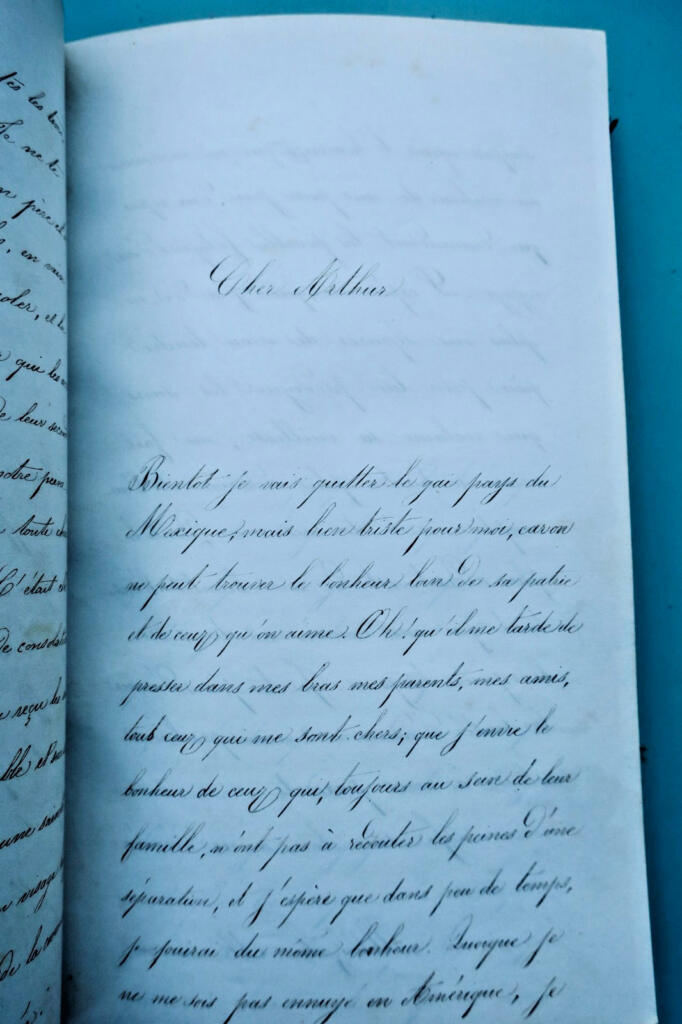 tes les
Je ne te
père et
en
coler, et
qui les
de leur
notre
toute
C'était
de
reçu les
ble et
une
visage
de la
Cher Arthur
Bientot je vais quitter le gai pays du
Mexique, mais bien triste pour moi, car on
ne peut trouver le bonheur loin de sa patrie
et de ceux qu'on aime. Oh! qu'il me tarde de
presser dans mes bras mes parents, mes amis,
tout ceux qui me sont chers; que j'envie le
bonheur de ceux qui, toujours au sein de leur
famille, n'ont pas à redouter les peines d'une
séparation, et j'espère que dans peu de temps,
je jouirai du même bonheur. Quoique je
ne me sois pas ennuyé en Amérique, je